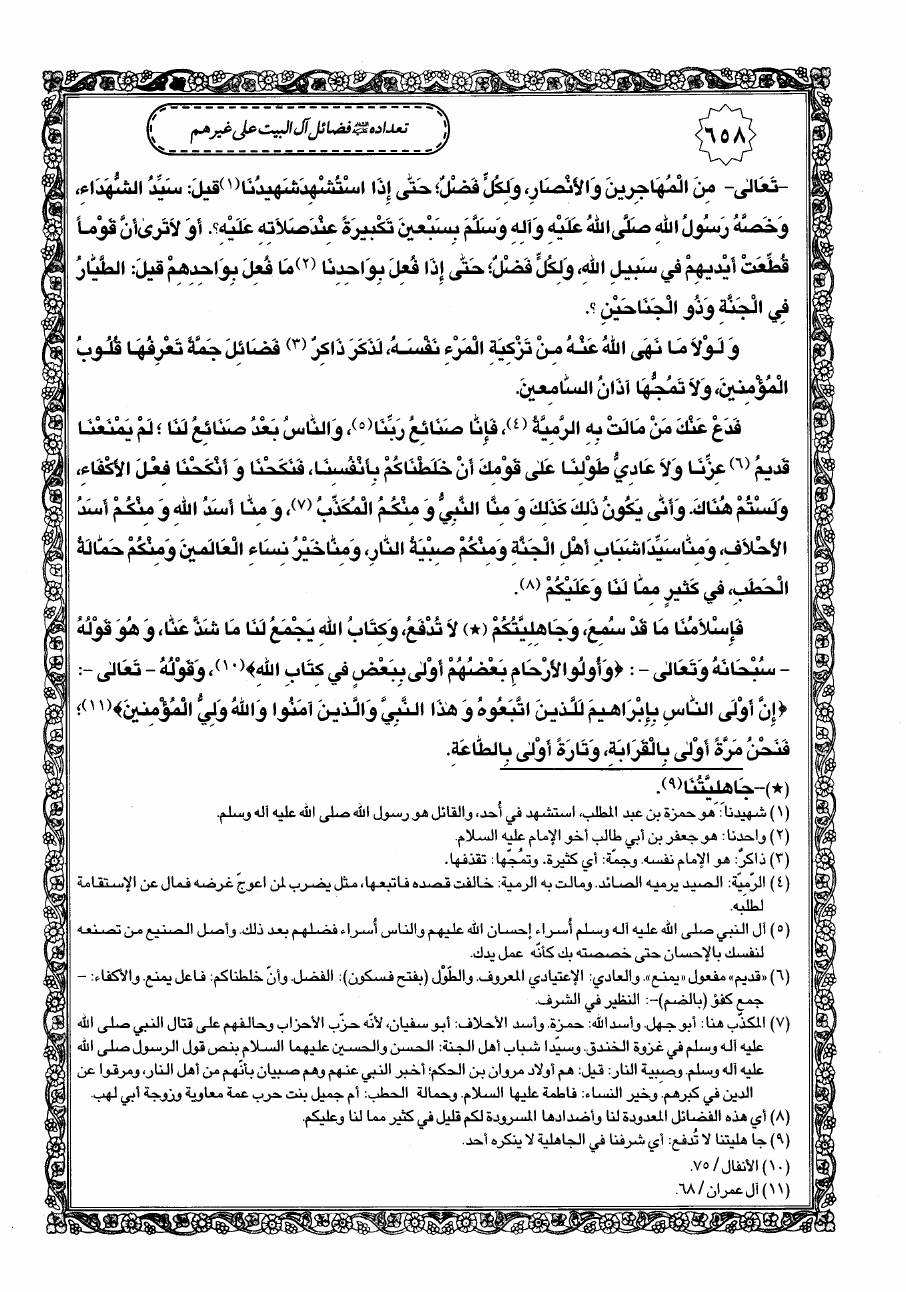 ٦٥٨
تعداده عليه السلام فضائل آل البيت على غيرهم
-تَعَالىٰ- مِنَ الْمُهَاجِرِينَ وَالأَنْصَارِ، وَلِكُلٍّ فَضْلٌ؛ حَتّٰى إِذَا اسْتُشْهِدَ شَهِيدُنَا(١) قِيلَ: سَيِّدُ الشُّهَدَاءِ،
وَخَصَّهُ رَسُولُ اللهِ صَلَّى اللهُ عَلَيْهِ وَآلِهِ وَسَلَّمَ بِسَبْعِينَ تَكْبِيرَةً عِنْدَ صَلاَتِهِ عَلَيْهِ؟. أَوَ لاَتَرىٰ أَنَّ قَوْماً
قُطِّعَتْ أَيْدِيهِمْ في سَبِيلِ اللهِ، وَلِكُلٍّ فَضْلٌ؛ حَتّٰى إِذَا فُعِلَ بِوَاحِدِنَا (٢) مَا فُعِلَ بِوَاحِدِهِمْ قيلَ: الطَّيَّارُ
فِي الْجَنَّةِ وَذُو الْجَنَاحَيْنِ ؟.
وَ لَوْلاَ مَا نَهَى اللهُ عَنْهُ مِنْ تَزْكِيَةِ الْمَرْءِ نَفْسَهُ، لَذَكَرَ ذَاكِرٌ (٣) فَضَائِلَ جَمَّةً تَعْرِفُهَا قُلُوبُ
الْمُؤْمِنِينَ، وَلاَ تَمُجُّهَا آذَانُ السَّامِعِينَ.
فَدَعْ عَنْكَ مَنْ مَالَتْ بِهِ الرَّمِيَّةُ (٤)، فَإِنَّا صَنَائِعُ رَبِّنَا(٥)، وَالنَّاسُ بَعْدُ صَنَائِعُ لَنَا ؛ لَمْ يَمْنَعْنَا
قَدِيمُ (٦) عِزِّنَا وَلاَ عَادِيُّ طَوْلِنَا عَلىٰ قَوْمِكَ أَنْ خَلَطْنَاكُمْ بِأَنْفُسِنَا، فَنَكَحْنَا وَ أَنْكَحْنَا فِعْلَ الأَكْفَاءِ،
وَلَسْتُمْ هُنَاكَ. وَأَنّٰى يَكُونُ ذٰلِكَ كَذٰلِكَ وَ مِنَّا النَّبِيُّ وَ مِنْكُمُ الْمُكَذِّبُ (٧)، وَ مِنَّا أَسَدُ اللهِ وَ مِنْكُمْ أَسَدُ
الأَحْلاَفِ، وَمِنَّاسَيِّدَاشَبَابِ أَهْلِ الْجَنَّةِ وَمِنْكُمْ صِبْيَةُ النَّارِ، وَمِنَّاخَيْرُ نِسَاءِ الْعَالَمِينَ وَمِنْكُمْ حَمَّالَةُ
الْحَطَبِ، في كَثيرٍ مِمَّا لَنَا وَعَلَيْكُمْ (٨).
فَإِسْلاَمُنَا مَا قَدْ سُمِعَ، وَجَاهِلِيَّتُكُمْ (★) لاَ تُدْفَعُ، وَكِتَابُ اللهِ يَجْمَعُ لَنَا مَا شَذَّ عَنَّا، وَ هُوَ قَوْلُهُ
- سُبْحَانَهُ وَتَعَالى - : ﴿وَأُولُو الأَرْحَامِ بَعْضُهُمْ أَوْلىٰ بِبَعْضٍ في كِتَابِ اللهِ﴾(١٠)، وَقَوْلُهُ - تَعَالى -:
﴿إِنَّ أَوْلَى النَّاسِ بِإِبْرَاهيمَ لَلَّذينَ اتَّبَعُوهُ وَ هٰذَا النَّبِيُّ وَالَّذينَ آمَنُوا وَاللهُ وَلِيُّ الْمُؤْمِنينَ﴾(١١)؛
فَنَحْنُ مَرَّةً أَوْلىٰ بِالْقَرَابَةِ، وَتَارَةً أَوْلىٰ بِالطَّاعَةِ.
(★)-جَاهِلِيَّتُنَا(٩).
(١) شهيدنا: هو حمزة بن عبد المطلب، استشهد في أحد، والقائل هو رسول الله صلى الله عليه آله وسلم.
(٢) واحدنا: هو جعفر بن أبي طالب أخو الإمام عليه السلام.
(٣) ذاكرٌ: هو الإمام نفسه. وجمّة: أي كثيرة. وتمُجّها: تقذفها.
(٤) الرّميّة: الصيد يرميه الصائد. ومالت به الرمية: خالفت قصده فاتبعها، مثل يضرب لمن اعوجّ غرضه فمال عن الإستقامة
لطلبه.
(٥) آل النبي صلى الله عليه آله وسلم أُسراء إحسان الله عليهم والناس أُسراء فضلهم بعد ذلك. وأصل الصنيع من تصنعه
لنفسك بالإحسان حتى خصصته بك كأنّه عمل يدك.
(٦) «قديم» مفعول «يمنع». والعادي: الإعتيادي المعروف. والطَّوْل (بفتح فسكون): الفضل. وأنّ خلطناكم: فاعل يمنع. والأكفاء: -
جمع كفؤ (بالضم)-: النظير في الشرف.
(٧) المكذّب هنا: أبو جهل. وأسد الله: حمزة. وأسد الأحلاف: أبو سفيان، لأنّه حزّب الأحزاب وحالفهم على قتال النبي صلى الله
عليه آله وسلم في غزوة الخندق. وسيّدا شباب أهل الجنة: الحسن والحسين عليهما السلام بنص قول الرسول صلى الله
عليه آله وسلم. وصبية النار: قيل: هم أولاد مروان بن الحكم؛ أخبر النبي عنهم وهم صبيان بأنّهم من أهل النار، ومرقوا عن
الدين في كبرهم. وخير النساء: فاطمة عليها السلام. وحمالة الحطب: أم جميل بنت حرب عمة معاوية وزوجة أبي لهب.
(٨) أي هذه الفضائل المعدودة لنا وأضدادها المسرودة لكم قليل في كثير مما لنا وعليكم.
(٩) جا هليتنا لا تُدفع: أي شرفنا في الجاهلية لا ينكره أحد.
(١٠) الأنفال / ٧٥.
(١١) آل عمران / ٦٨.